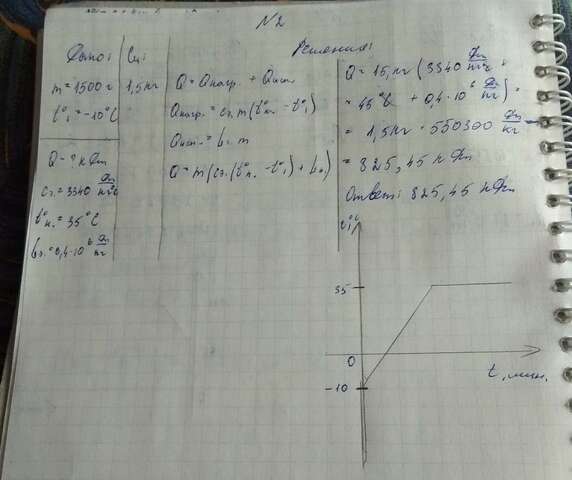 N2
Дано:
m = 1500 г
t°₁ = -10°C
Q - ? кДж
cэ. = 3340 Дж/кг°C
t°к. = 35°C
Lэ. = 0,4·10⁶ Дж/кг
Си:
1,5 кг
Решение:
Q = Qнагр. + Qисп.
Qнагр. = cэ. m (t°к. - t°₁)
Qисп. = L m
Q = m (cэ. (t°к. - t°₁) + Lэ.)
Q = 1,5 кг (3340 Дж/кг°C ·
· 45°C + 0,4·10⁶ Дж/кг) =
= 1,5 кг · 550300 Дж/кг =
= 825,45 кДж
Ответ: 825,45 кДж
t,°C
35
0
t, мин.
-10